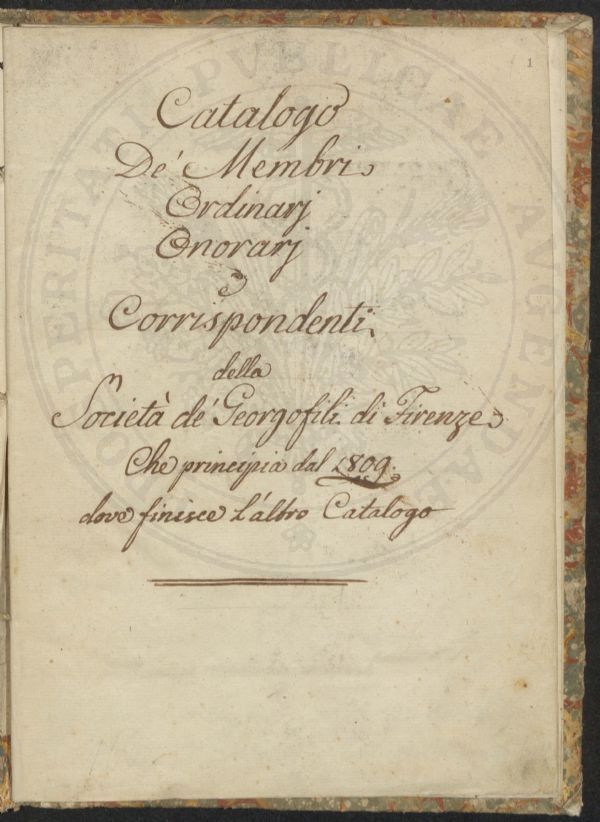 1
Catalogo
De' Membri
Ordinarj
Onorarj
e
Corrispondenti
della
Società de' Georgofili di Firenze
Che principia dal 1809.
dove finisce l'altro Catalogo
PROSPERITATI PVBLICAE AVGENDAE